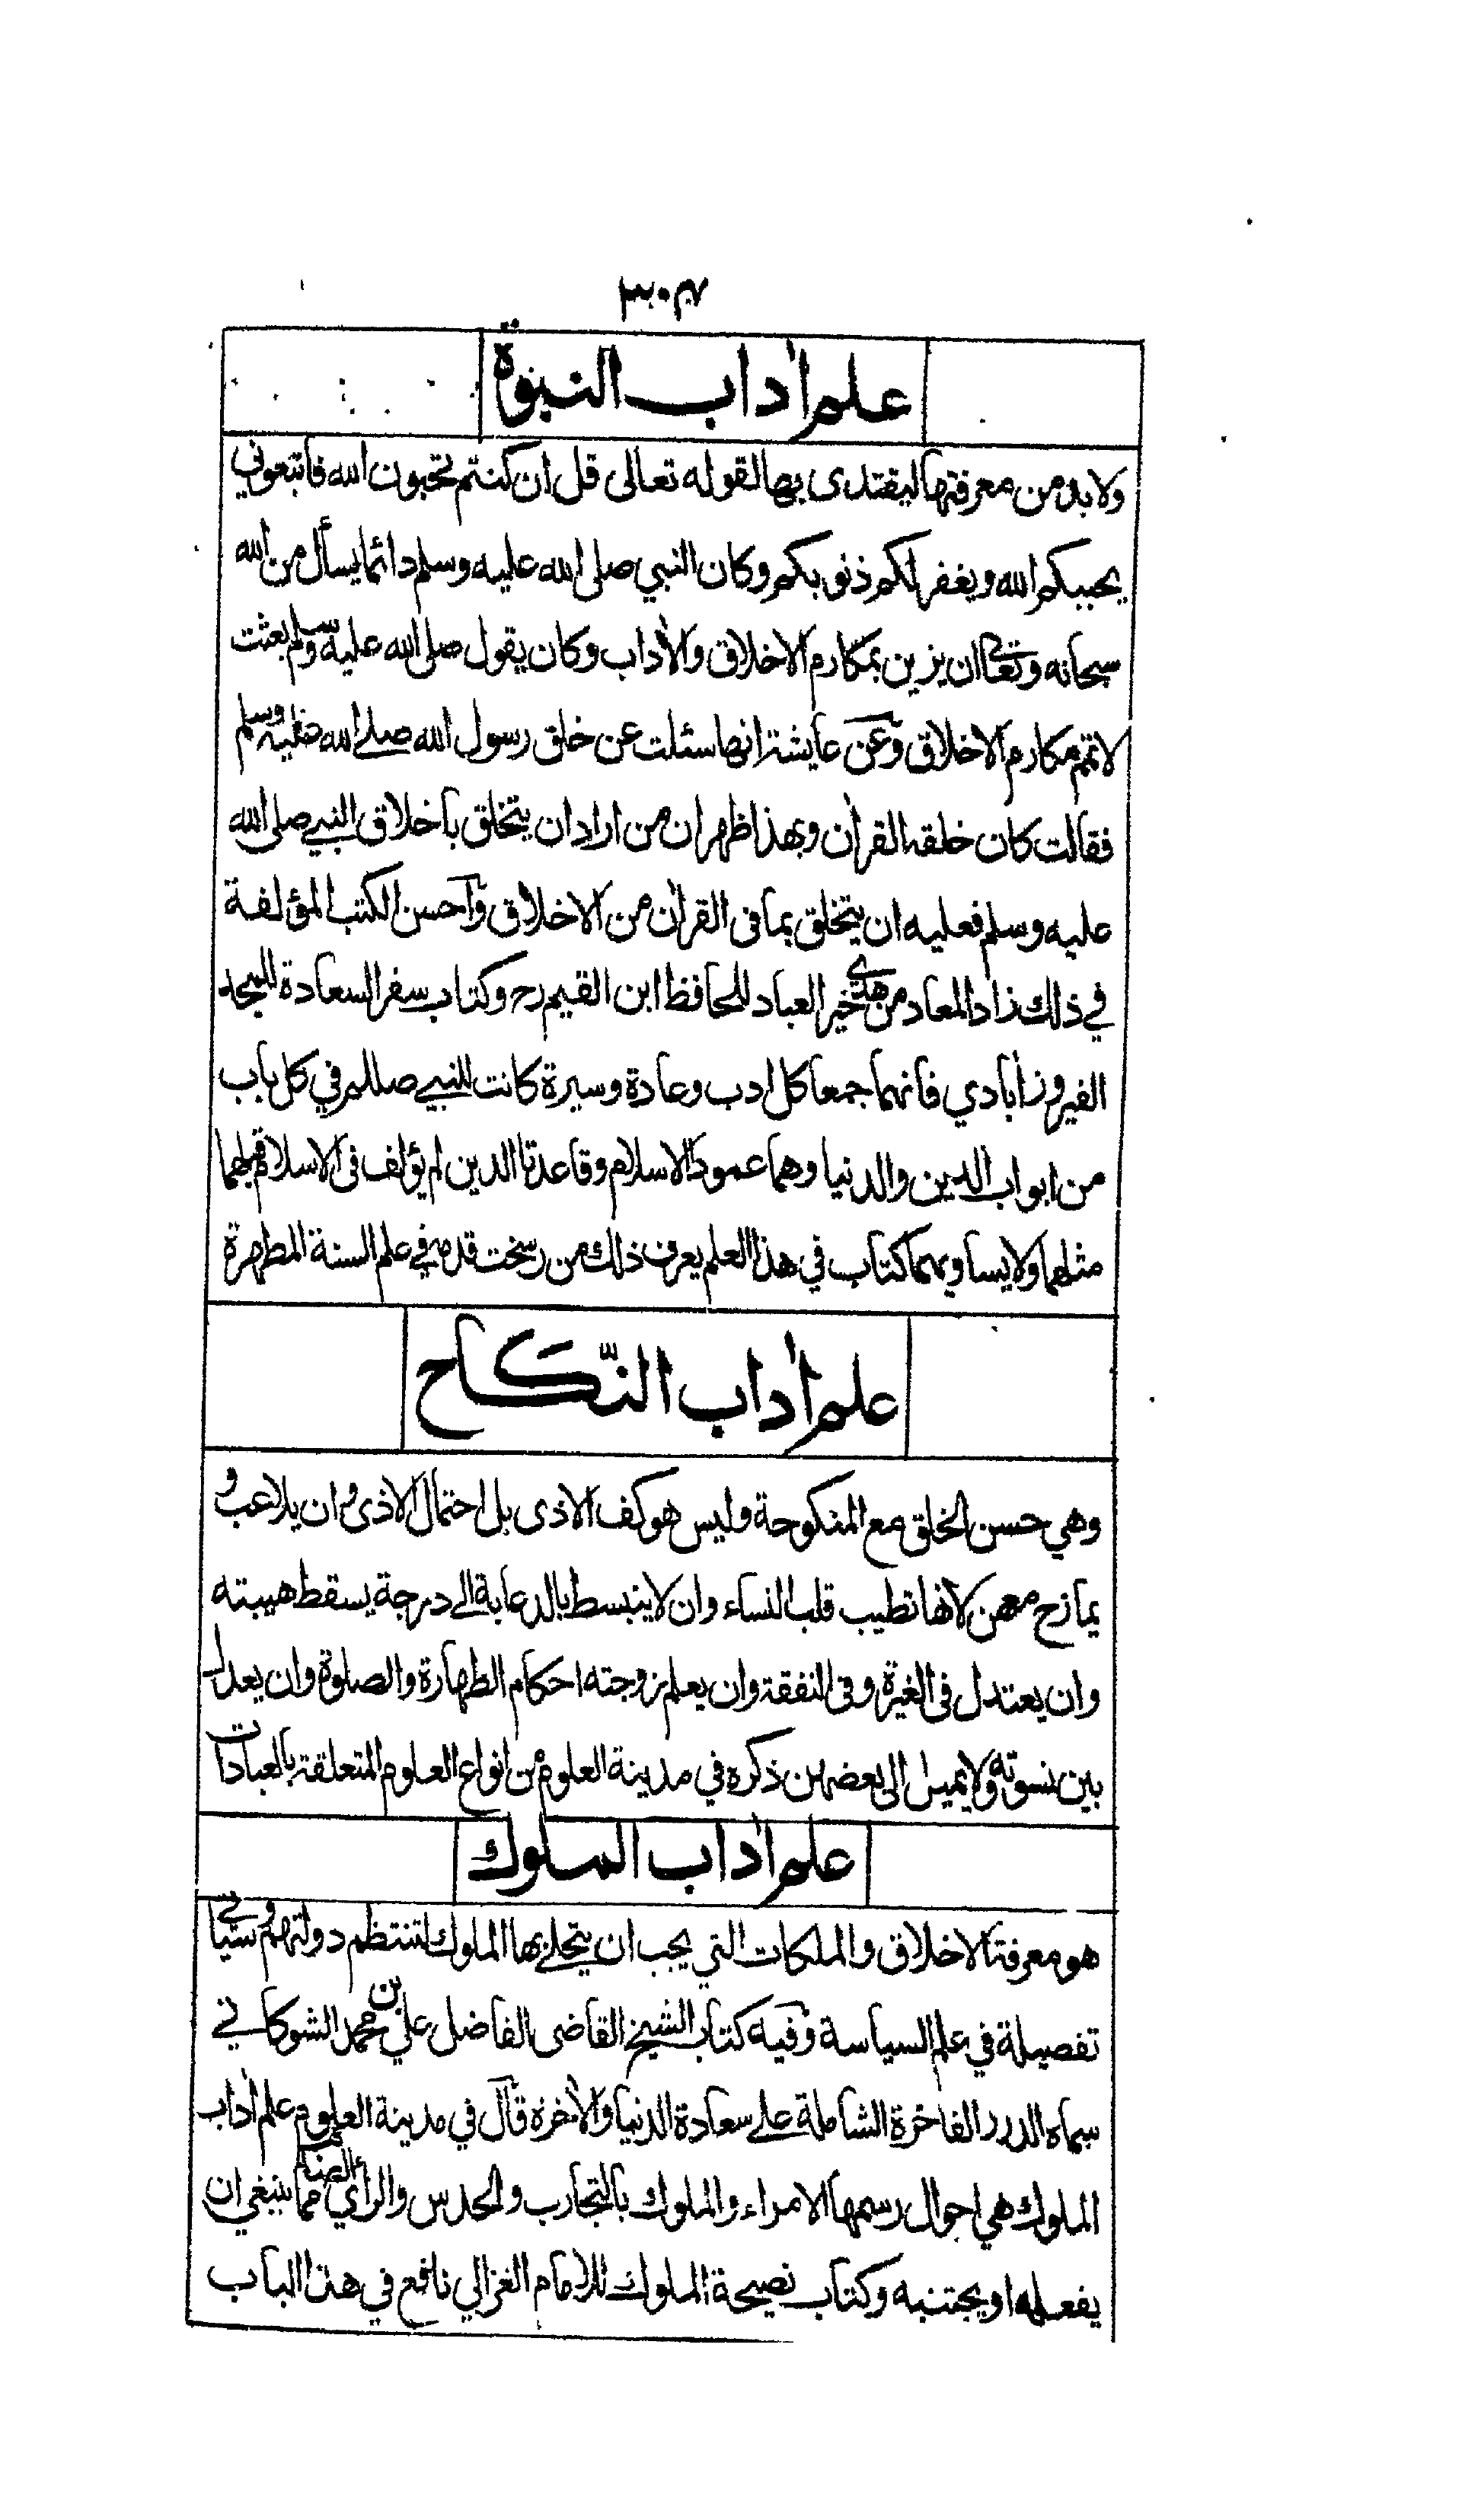 علم اداب النبوة
ولا بد من معرفتها ليقتدى بها لقوله تعالى قل ان كنتم تحبون الله فاتبعوني
يحببكم الله ويغفر لكم ذنوبكم وكان النبي صلى الله عليه وسلم دائما يسأل من الله
سبحانه وتعالى ان يزين بمكارم الاخلاق والأداب وكان يقول صلى الله عليه وسلم بعثت
لاتمم مكارم الاخلاق وعن عايشة انها سئلت عن خلق رسول الله صلى الله عليه وسلم
فقالت كان خلقه القرأن وبهذا ظهر ان من اراد ان يتخلق بأخلاق النبي صلى الله
عليه وسلم فعليه ان يتخلق بما فى القرأن من الاخلاق وأحسن الكتب المؤلفة
في ذلك زاد المعاد من هدى خير العباد للحافظ ابن القيم رح وكتاب سفر السعادة للمجد
الفيروزأبادي فانهما جمعا كل ادب وعادة وسيرة كانت للنبي صللم في كل باب
من ابواب الدين والدنيا وهما عمودا الاسلام وقاعدتا الدين لم يؤلف فى الاسلام قبلهما
مثلهما ولا يساويهما كتاب في هذا العلم يعرف ذلك من رسخت قدمه في علم السنة المطهرة
علم اداب النّكاح
وهي حسن الخلق مع المنكوحة وليس هو كف الاذى بل احتمال الاذى وان يلاعب و
يمازح معهن لانها تطيب قلب النساء وان لا ينبسط بالدعابة الى درجة يسقط هيبته
وان يعتدل فى الغيرة وفى النفقة وان يعلم زوجته احكام الطهارة والصلوة وان يعدل
بين نسوته ولا يميل الى بعضهن ذكره في مدينة العلوم من انواع العلوم المتعلقة بالعبادات
علم اداب الملوك
هو معرفة الاخلاق والملكات التي يجب ان يتحلى بها الملوك لتنتظم دولتهم وسيأتي
تفصيله في علم السياسة وفيه كتاب الشيخ القاضى الفاضل علي بن محمد الشوكاني
سماه الدرر الفاخرة الشاملة على سعادة الدنيا والأخرة قال في مدينة العلوم علم اداب
الملوك هي احوال رسمها الامراء والملوك بالتجارب والحدس والرأي الصائب مما ينبغي ان
يفعله او يجتنبه وكتاب نصيحة الملوك للامام الغزالي نافع في هذا الباب